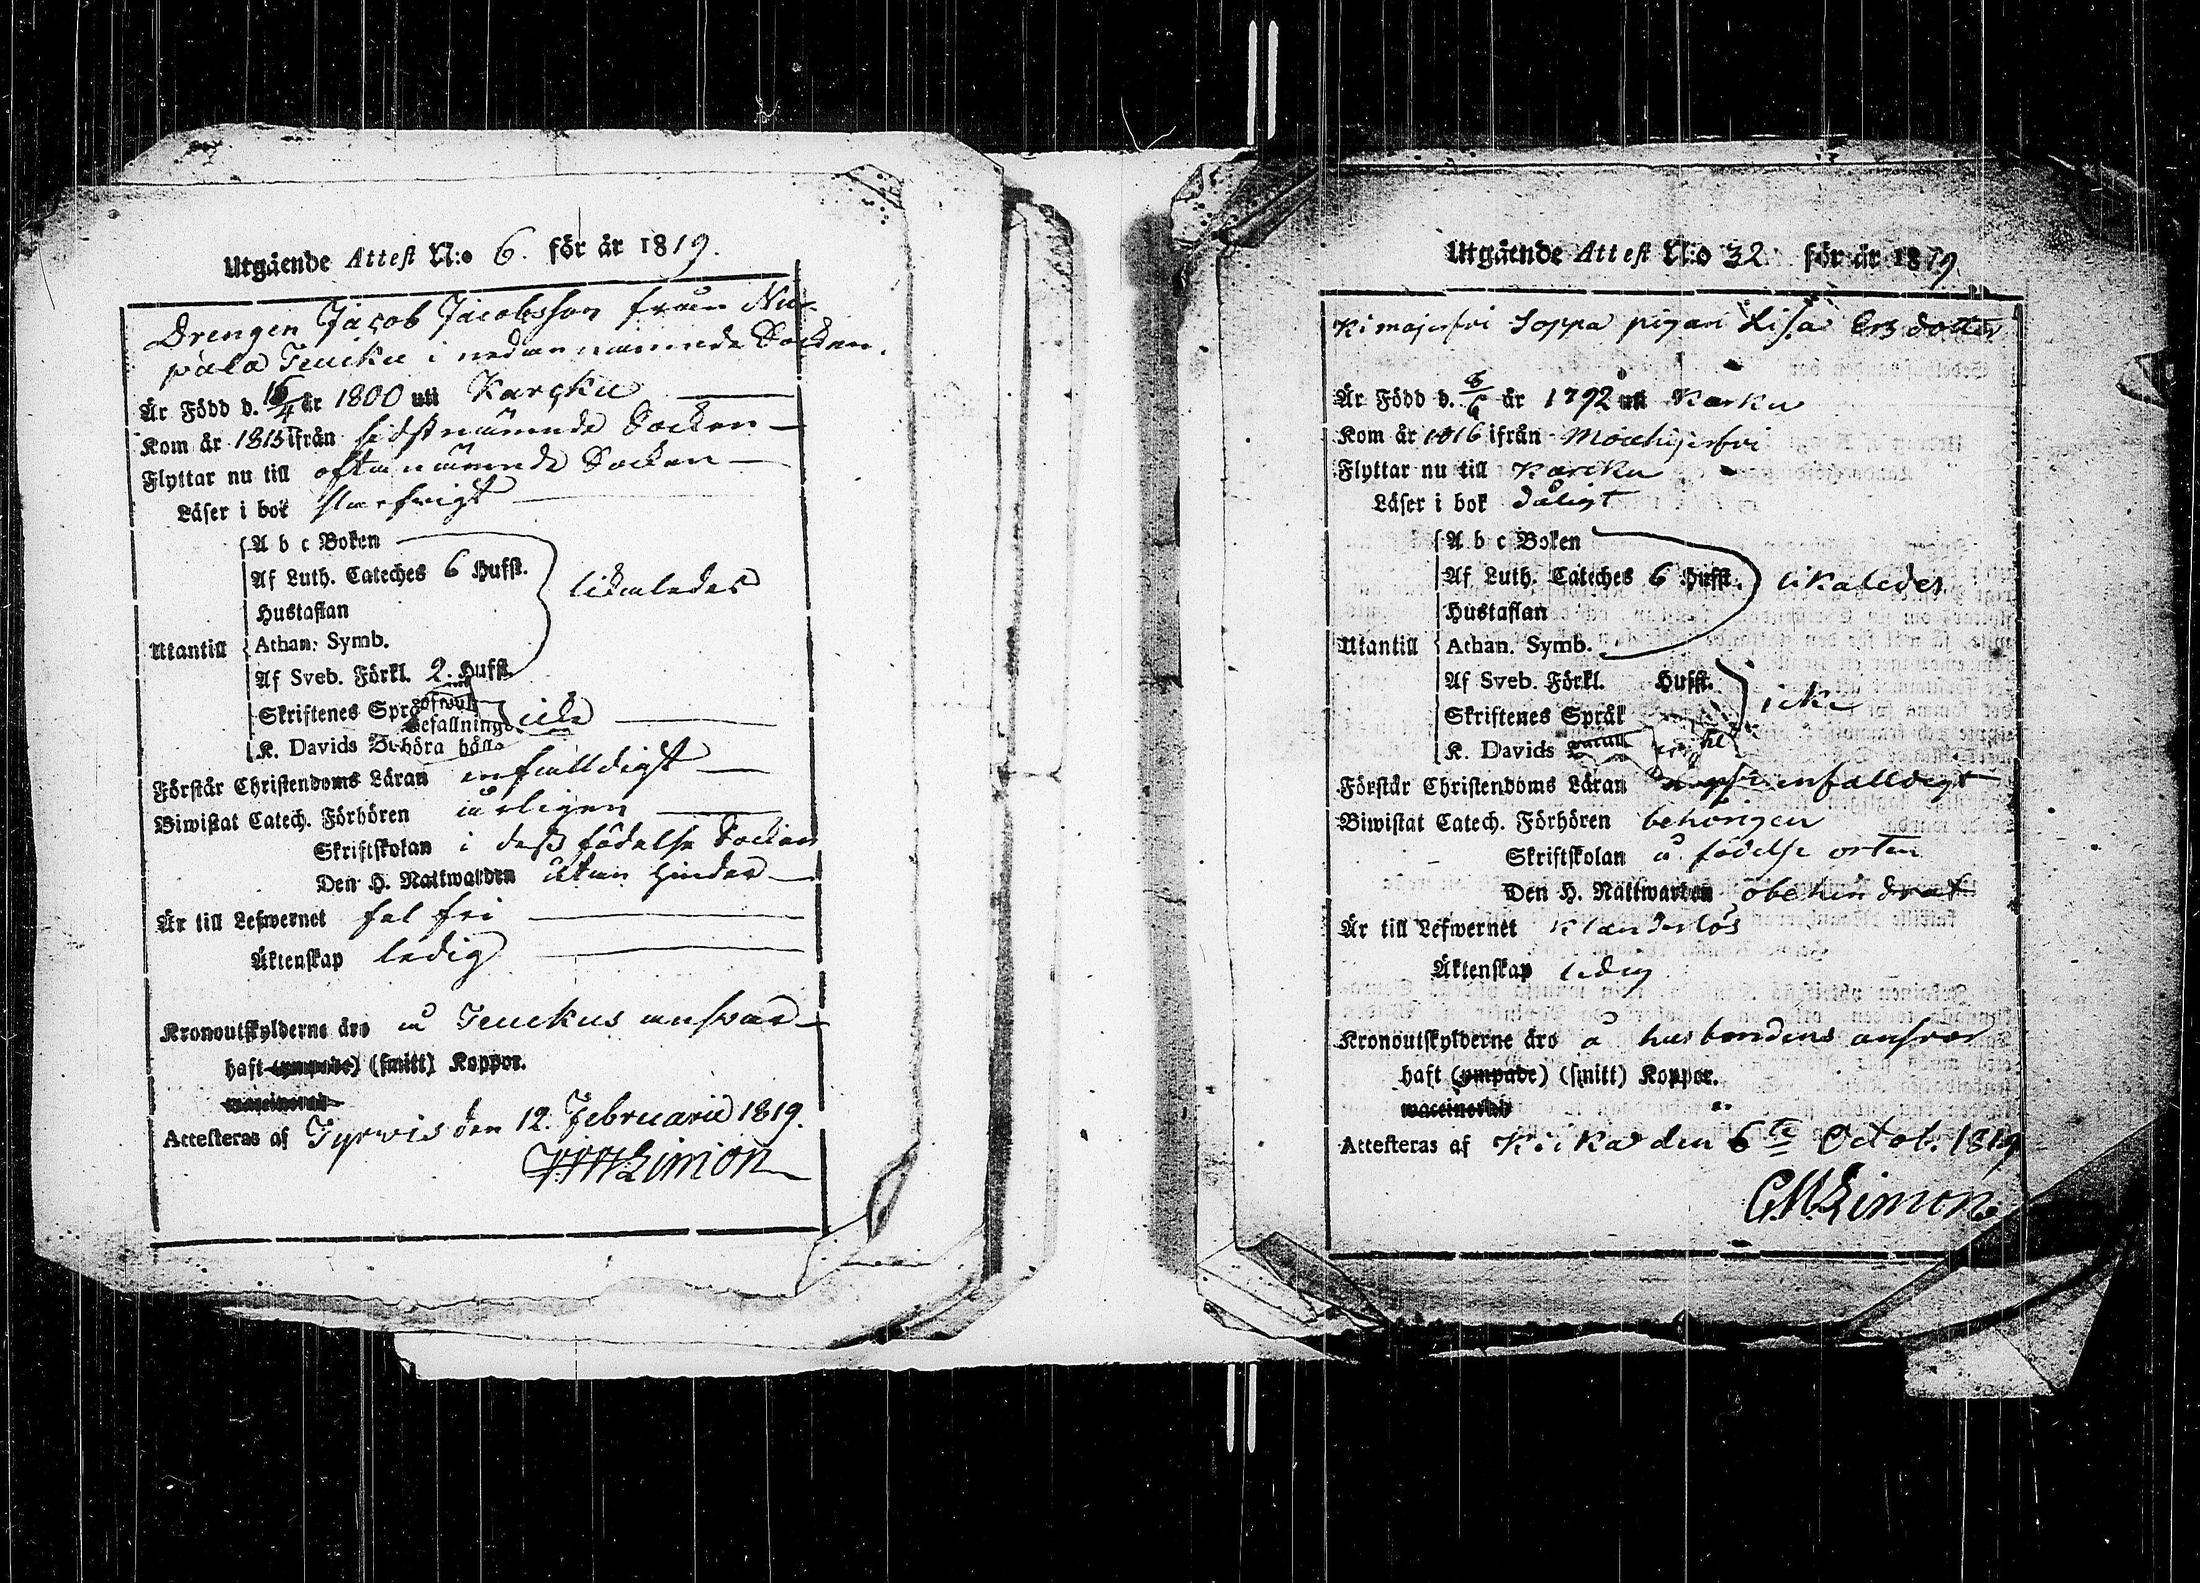 Utgående Attest N:o 6. för år 1819.
Drengen Jacob Jacobsson från Nu-
pala Teucku i nedannämnde Socken.
Är Född d. 16/4 år 1800 uti Karcku
Kom år 1815 ifrån sidstnämnde Socken
Flyttar nu till oftanämnde Socken
Läser i bok slarfvigt
A b c Boken
Af Luth. Cateches 6 Hufst.
likaledes
Hustaflan
Utantill
Athan. Symb.
Af Sveb. Förkl. 2. Hufst.
Skriftenes Språ
befallning
icke
K. Davids
höra håll
Förstår Christendoms Läran enfalldigt
Biwistat Catech. Förhören årligen
Skriftskolan i dess födelse Socken
Den H. Nattwarden utan hinder
Är till Lefwernet fel fri
Äktenskap ledig
Kronoutskylderne äro å Teuckus answar
haft (ympade) (smitt) Koppor.
waccinerad
Attesteras af Tyrvis den 12. Februarii 1819.
Limon
Utgående Attest N:o 32 för år 1819
Kimajerfvi Soppa pigan Lisa Ersdotter
Är Född d. 8/6 år 1792 uti Karku
Kom år 1816 ifrån Mouhijerfvi
Flyttar nu till Karcku
Läser i bok dåligt
A b c Boken
Af Luth. Cateches 6 Hufst.
likaledes
Hustaflan
Utantill
Athan. Symb.
Af Sveb. Förkl. Hufst.
icke
Skriftenes Språk
K. Davids
Förstår Christendoms Läran enfalldigt
Biwistat Catech. Förhören behörigen
Skriftskolan å födelse orten
Den H. Nattwarden obehindrat
Är till Lefwernet klanderlös
Äktenskap ledig
Kronoutskylderne äro å husbondens answar
haft (ympade) (smitt) Koppor.
waccinerad
Attesteras af Kiika den 6te Octob. 1819
C.M. Limon